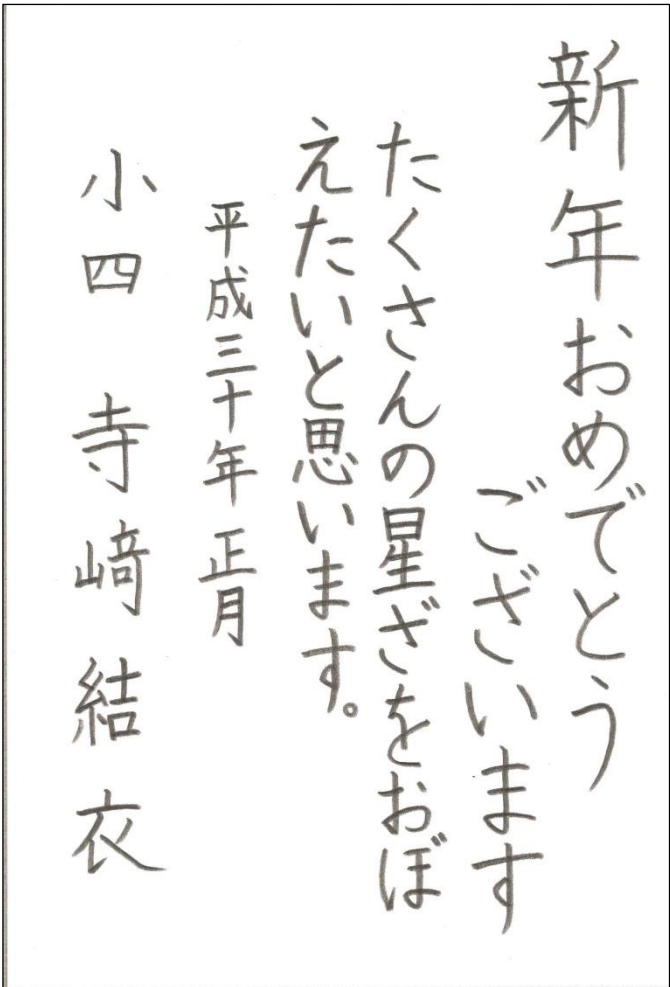 新年おめでとう
ございます
たくさんの星ざをおぼ
えたいと思います。
平成三十年 正月
小四 寺﨑結衣